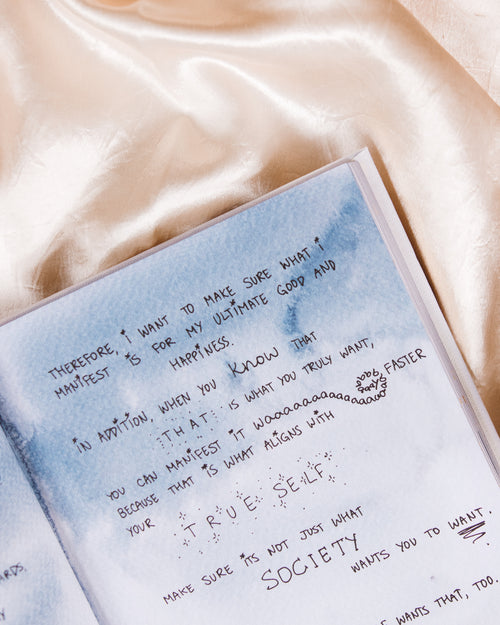 THEREFORE, i WANT TO MAKE SURE WHAT i
MANiFEST iS FOR MY ULTiMATE GOOD AND
HAPPiNESS.
iN ADDiTiON, WHEN YOU KNOW THAT
THAT iS WHAT YOU TRULY WANT,
YOU CAN MANiFEST iT waaaaaaaaaaaaaaaa FASTER
BECAUSE THAT iS WHAT ALiGNS WiTH
YOUR TRUE SELF.
MAKE SURE iTS NOT JUST WHAT
SOCIETY WANTS YOU TO WANT.
WANTS THAT, TOO.
ARDS